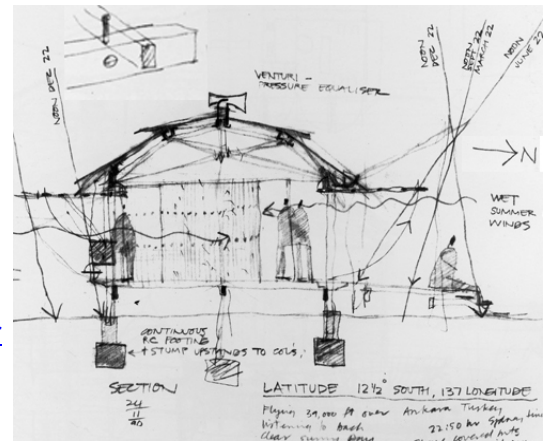 NOON DEC 22
VENTURI -
PRESSURE EQUALISER
NOON
DEC 22
NOON
SEPT 22
MARCH 22
NOON
JUNE 22
N
WET
SUMMER
WINDS
CONTINUOUS
RC FOOTING
+ STUMP UPSTANDS TO COL'S.
SECTION
24
11
90
LATITUDE 12½° SOUTH, 137 LONGITUDE
Flying 39,000 ft over Ankara Turkey
listening to bach 22:50 hr Sydney time
clear